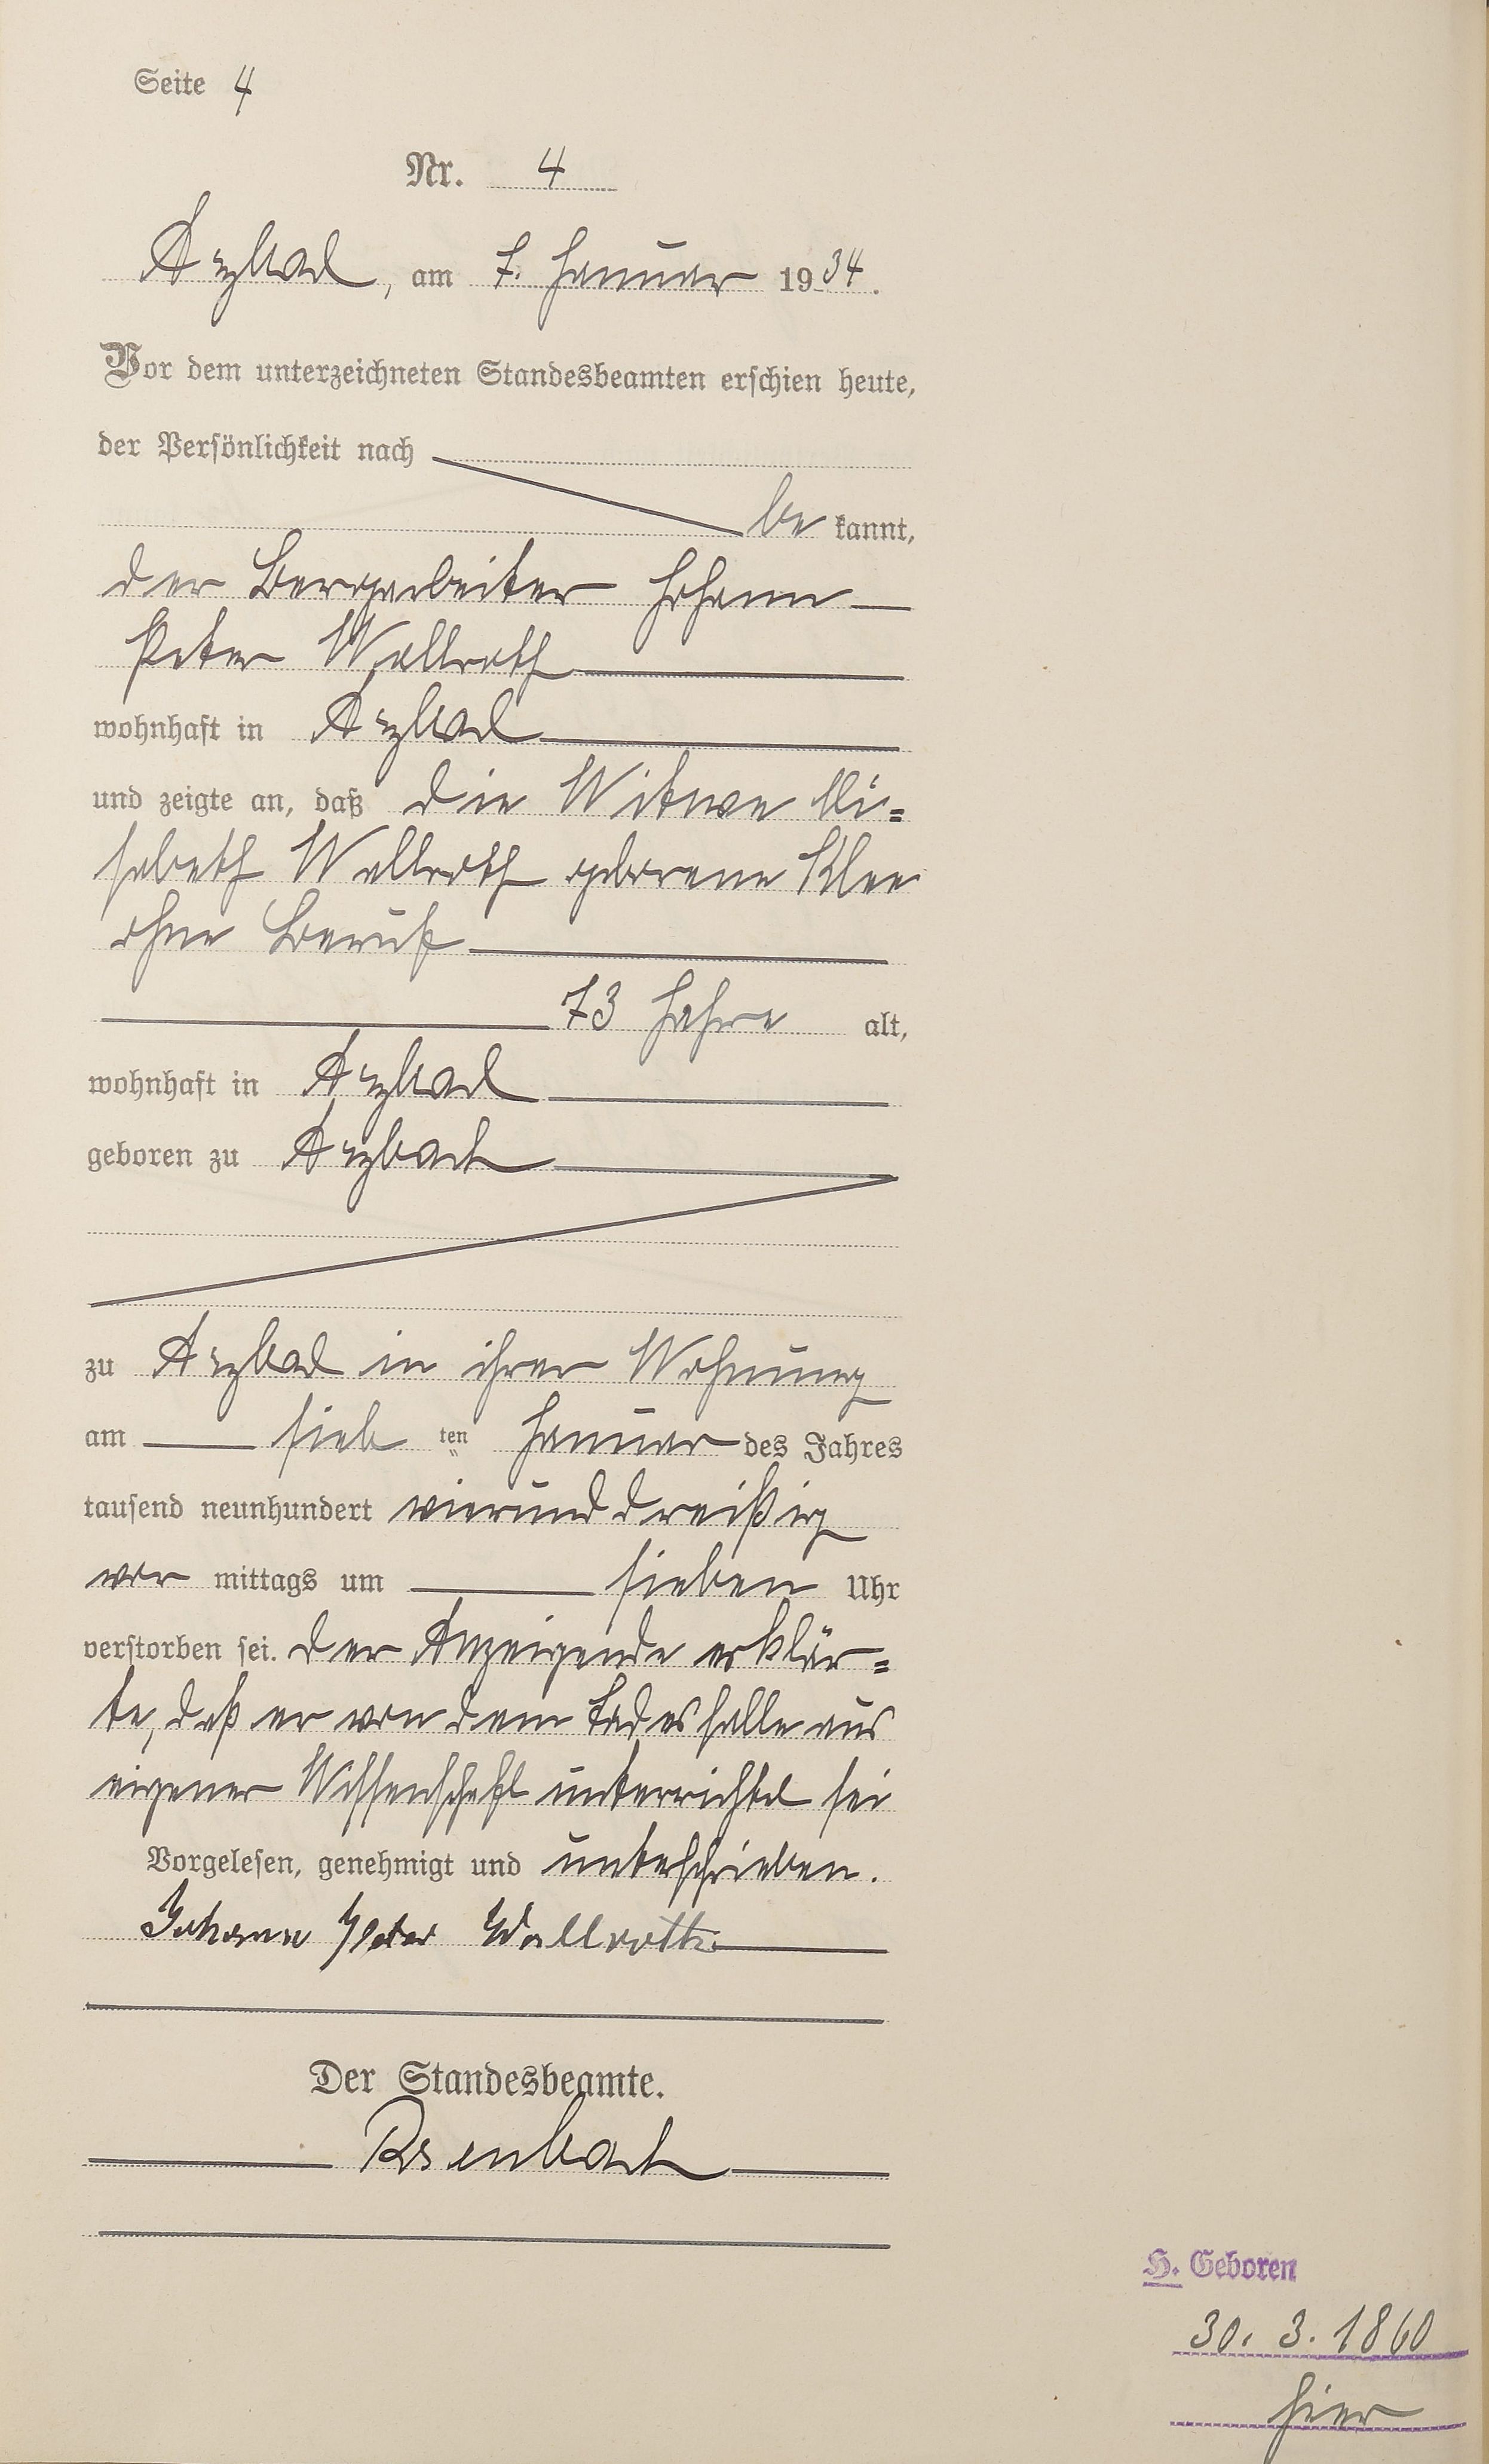 Seite 4
Nr. 4
Arzbach, am 7. Januar 1934.
Vor dem unterzeichneten Standesbeamten erschien heute,
der Persönlichkeit nach
be kannt,
der Bergarbeiter Johann
Peter Wallroth
wohnhaft in Arzbach
und zeigte an, daß die Witwe Eli=
sabeth Wallroth geborene Klee
ohne Beruf
73 Jahre alt,
wohnhaft in Arzbach
geboren zu Arzbach
zu Arzbach in ihrer Wohnung
am sieb ten Januar des Jahres
tausend neunhundert vierunddreißig
vor mittags um sieben Uhr
verstorben sei. Der Anzeigende erklär=
te, daß er von dem Todesfalle aus
eigener Wissenschaft unterrichtet sei
Vorgelesen, genehmigt und unterschrieben.
Johann Peter Wallroth
Der Standesbeamte.
H. Geboren
30. 3. 1860
hier